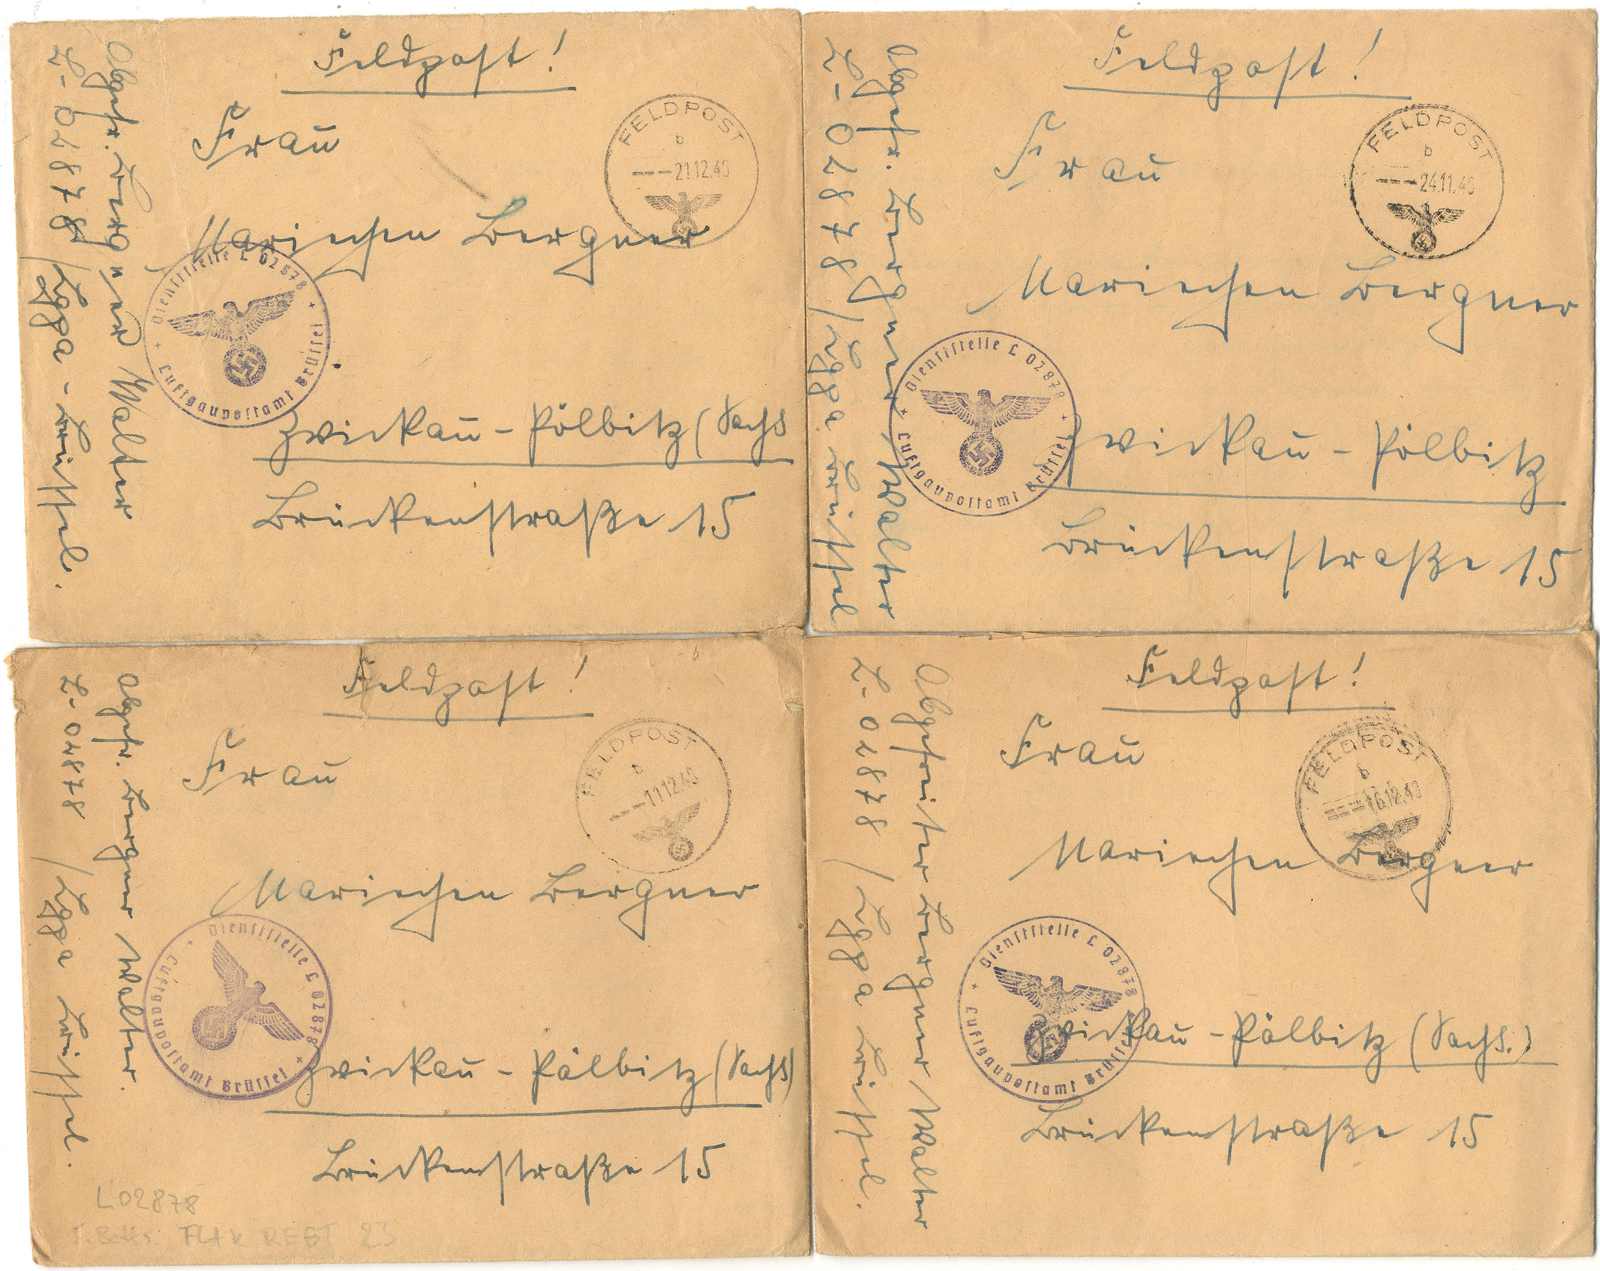 Feldpost!
FELDPOST
b
21.12.40
Frau
Mariechen Bergner
Zwickau-Pölbitz (Sachs
Brückenstraße 15
Dienststelle L 02878
Luftgaupostamt Brüssel
Abgefr. Bergner Walter
L-02878/Lgpa-Brüssel.
Feldpost!
FELDPOST
b
24.11.40
Frau
Mariechen Bergner
Zwickau-Pölbitz
Brückenstraße 15
Dienststelle L 02878
Luftgaupostamt Brüssel
Abgefr. Bergner Walter
L-02878/Lgpa. Brüssel
Feldpost!
FELDPOST
b
11.12.40
Frau
Mariechen Bergner
Zwickau-Pölbitz (Sachs)
Brückenstraße 15
Dienststelle L 02878
Luftgaupostamt Brüssel
Abgefr. Bergner Walter.
L-02878/Lgpa Brüssel.
L02878
FLAK REGT 23
Feldpost!
FELDPOST
b
16.12.40
Frau
Mariechen Bergner
Zwickau-Pölbitz (Sachs.)
Brückenstraße 15
Dienststelle L 02878
Luftgaupostamt Brüssel
Abgefreiter Bergner Walter
L-02878/Lgpa Brüssel.